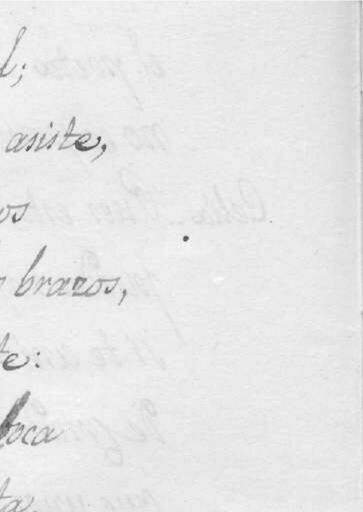 l;
asiste,
os
brazos,
te:
boca
ta.